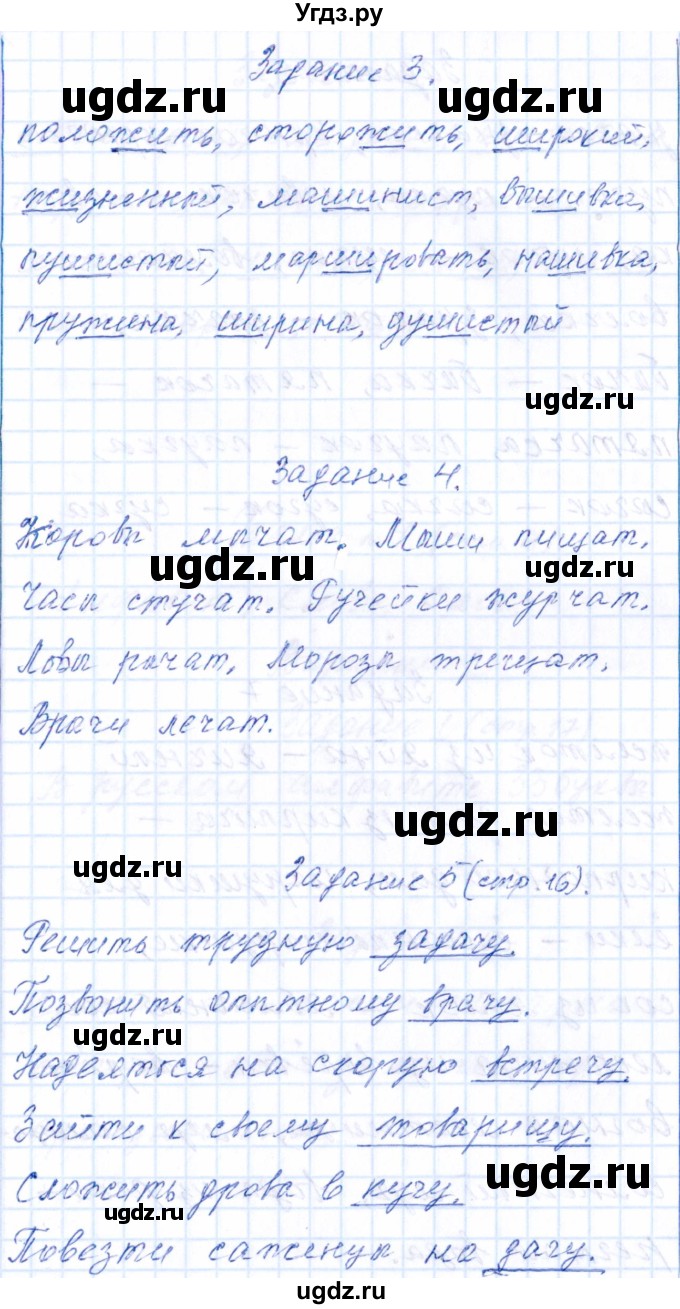 Угдз.ру
Задание 3.
ugdz.ru ugdz.ru
положить, сторожить, широкий,
ugdz.ru
жизненный, машинист, вышивка,
ugdz.ru
пушистый, маршировать, нашивка,
пружина, ширина, душистый
ugdz.ru
Задание 4.
Коровы мычат. Мыши пищат.
ugdz.ru ugdz.ru
Часы стучат. Ручейки журчат.
Львы рычат. Морозы трещат.
Врачи лечат.
ugdz.ru
ugdz.ru
Задание 5 (стр. 16).
Решить трудную задачу.
Позвонить опытному врачу.
ugdz.ru
Надеяться на скорую встречу.
Зайти к своему товарищу.
ugdz.ru
Сложить дрова в кучу.
ugdz.ru
Повезти саженцы на дачу.
ugdz.ru